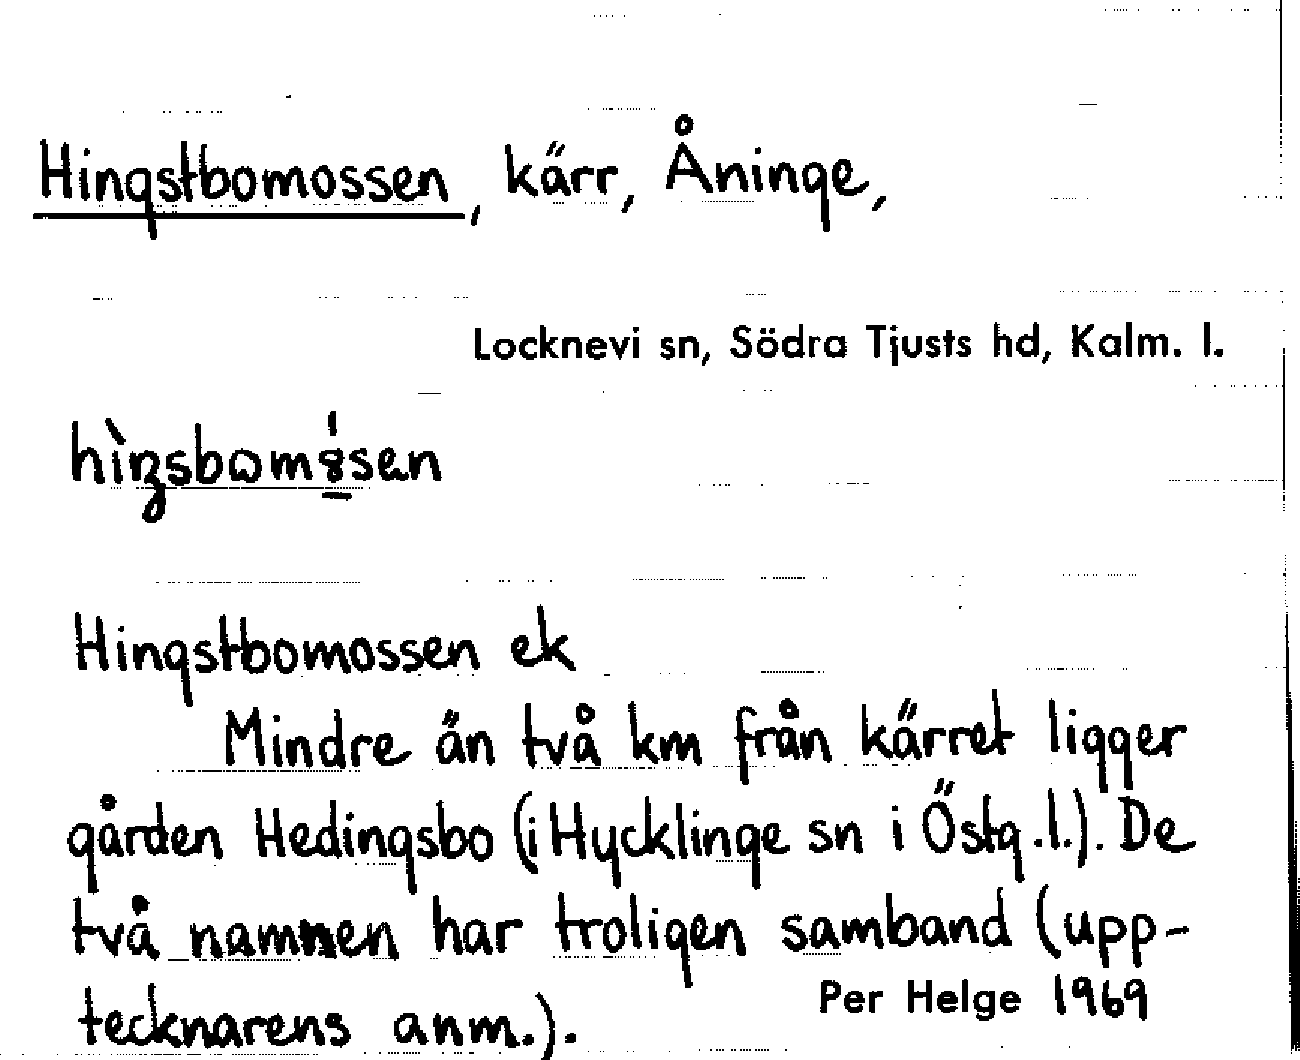 Hingstbomossen, kärr, Åninge,
Locknevi sn, Södra Tjusts hd, Kalm. l.
Hingstbomossen ek
Mindre än två km från kärret ligger
gården Hedingsbo (i Hycklinge sn i Östg.l.). De
två namnen har troligen samband (upp-
tecknarens anm.).
Per Helge 1969